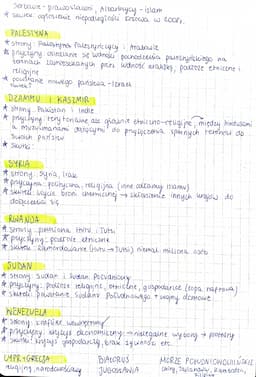 Serbowie - prawosławni, Albańczycy - islam
* skutek ogłoszenie niepodległości Kosowa w 2008r.
PALESTYNA
* strony: Palestyna Palestyńczycy i Arabowie
* przyczyny: osiedlanie się ludności pochodzenia żydowskiego na
terenach zamieszkanych przez ludność arabską, podłoże etniczne i
religijne
* powstanie nowego państwa - Izrael
DŻAMMU I KASZMIR
* strony: Pakistan i Indie
* przyczyny: terytorialne ale głównie etniczno-religijne, między hindusami
a muzułmanami dążącymi do przyłączenia spornych terenów do
swoich państw
* skutki:
SYRIA
* strony: Syria, Irak
* przyczyna: polityczna, religijna (inne odłamy islamu)
* skutek: użycie broni chemicznej → skłonienie innych krajów do
RWANDA
* strony: plemiona Hutu i Tutsi
* przyczyny: podłoże etniczne
* skutek: zamordowanie (Hutu → Tutsi) niemal miliona osób
SUDAN
* strony Sudan i Sudan Południowy
* przyczyny: podłoże religijne, etniczne, gospodarcze (ropa naftowa)
* skutek: powstanie Sudanu Południowego + wojny domowe
WENEZUELA
* strony: konflikt wewnętrzny
* przyczyny: kryzys ekonomiczny → nielegalne wybory → protesty
* skutki: kryzys gospodarki, brak żywności etc.
CYPR + GRECJA BIAŁORUŚ MORZE POŁUDNIOWOCHIŃSKIE
religijny, narodowościowy JUGOSŁAWIA